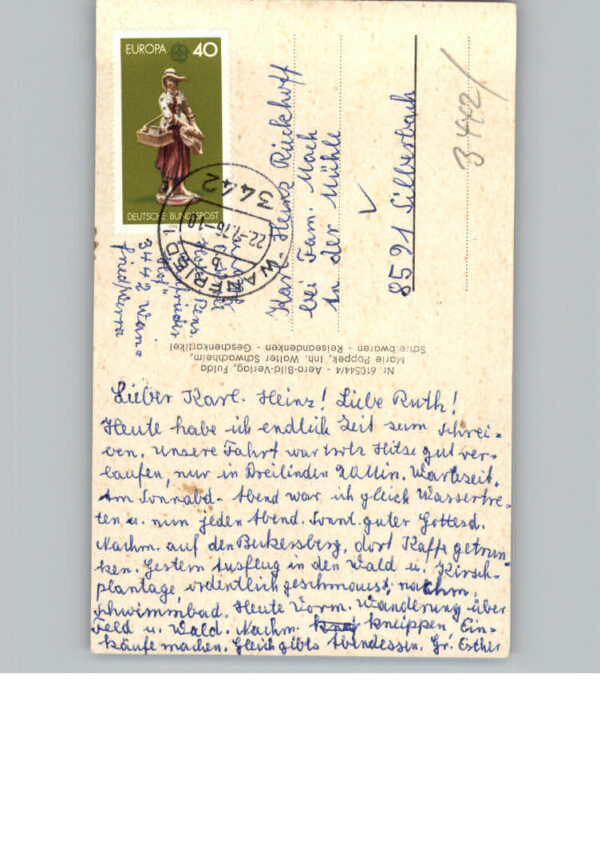 EUROPA 40
DEUTSCHE BUNDESPOST
3442
22.-7.76-10
WANFRIED 1
b
Hotel Pens.
3442 Wan=
fried/Werra
Karl-Heinz Rückhoff
bei Fam. Mach
In der Mühle
8591 Silberbach
3442/
Nr. 610544/4 - Aero-Bild-Verlag, Fulda
Marie Poppek, Inh. Walter Schwachheim,
Schreibwaren - Reiseandenken - Geschenkartikel
Lieber Karl-Heinz! Liebe Ruth!
Heute habe ich endlich Zeit zum Schrei-
ben. Unsere Fahrt war trotz Hitze gut ver-
laufen, nur in Dreilinden 20 Min. Wartezeit.
Am Sonnabd.-Abend war ich gleich Wassertre-
ten u. nun jeden Abend. Sonnt. guter Gottesd.
Nachm. auf den, dort Kaffe getrun-
ken. Gestern Ausflug in den Wald u. Kirsch-
plantage, ordentlich geschmaust, nachm.
Schwimmbad. Heute Vorm. Wanderung über
Feld u. Wald. Nachm. kneippen Ein-
käufe machen. Gleich gibts Abendessen. Gr. Esther